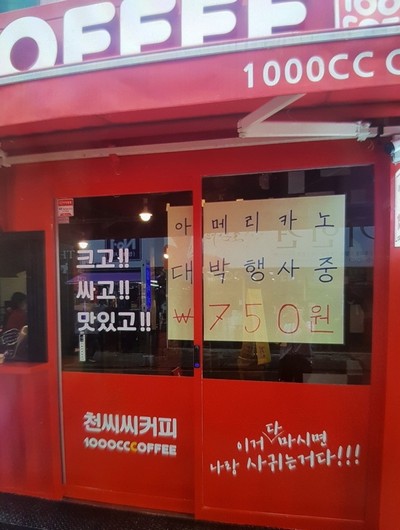 COFFEE
1000CC C
크고!!
싸고!!
맛있고!!
아메리카노
대박행사중
₩750원
천씨씨커피
1000CCCOFFEE
이거 다 마시면
나랑 사귀는거다!!!